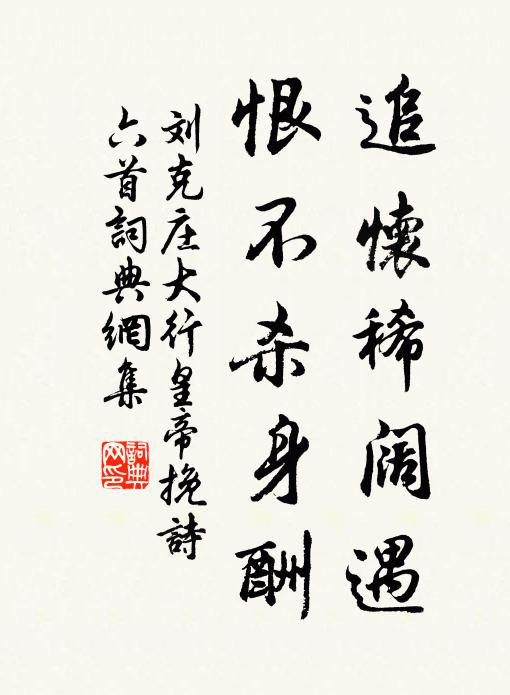 追懷稀阔遇
恨不杀身酬
刘克庄大行皇帝挽詩
六首詞典網集
詞典
网印